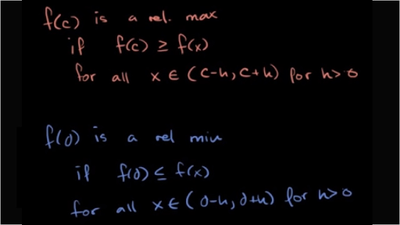 f(c) is a rel. max
if f(c) ≥ f(x)
for all x ∈ (c-h, c+h) for h>0
f(d) is a rel min
if f(d) ≤ f(x)
for all x ∈ (d-h, d+h) for h>0